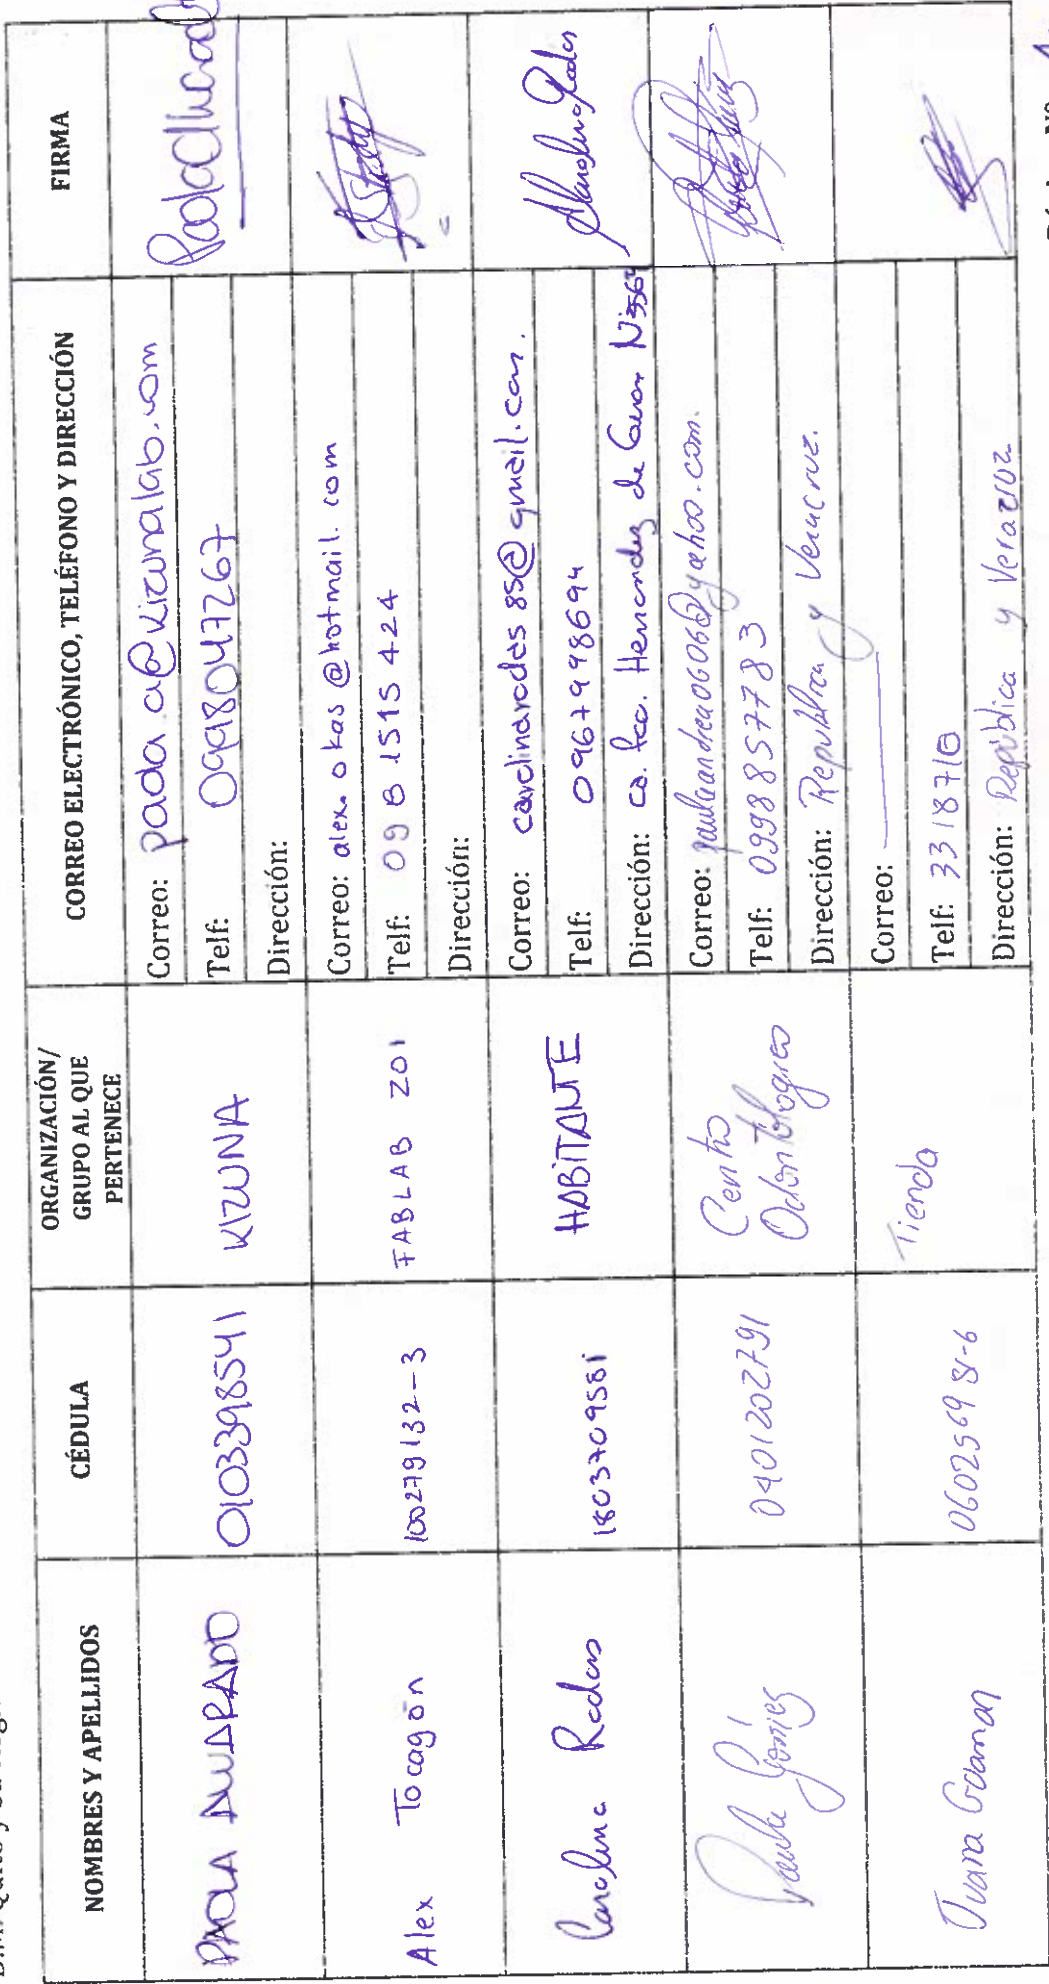 NOMBRES Y APELLIDOS
CÉDULA
ORGANIZACIÓN/
GRUPO AL QUE
PERTENECE
CORREO ELECTRÓNICO, TELÉFONO Y DIRECCIÓN
FIRMA
PAOLA ANDRADO
0103398541
KIZUNA
Correo: paola.a@kizunalab.com
Telf: 0998047267
Dirección:
Alex Tocagón
100279132-3
FABLAB ZOI
Correo: alex.okas@hotmail.com
Telf: 09 8 1515 424
Dirección:
Carolina Rodas
1803709581
HABITANTE
Correo: carolinarodas85@gmail.com.
Telf: 0967998694
Dirección: Ca. Fco. Hernandez de
Paula Gómez
0401202791
Centro
Odontológico
Correo: paulaandrea0606@yahoo.com.
Telf: 0998857783
Dirección: República y Veracruz.
Juana Guaman
060256981-6
Tienda
Correo:
Telf: 3318710
Dirección: República y Veracruz